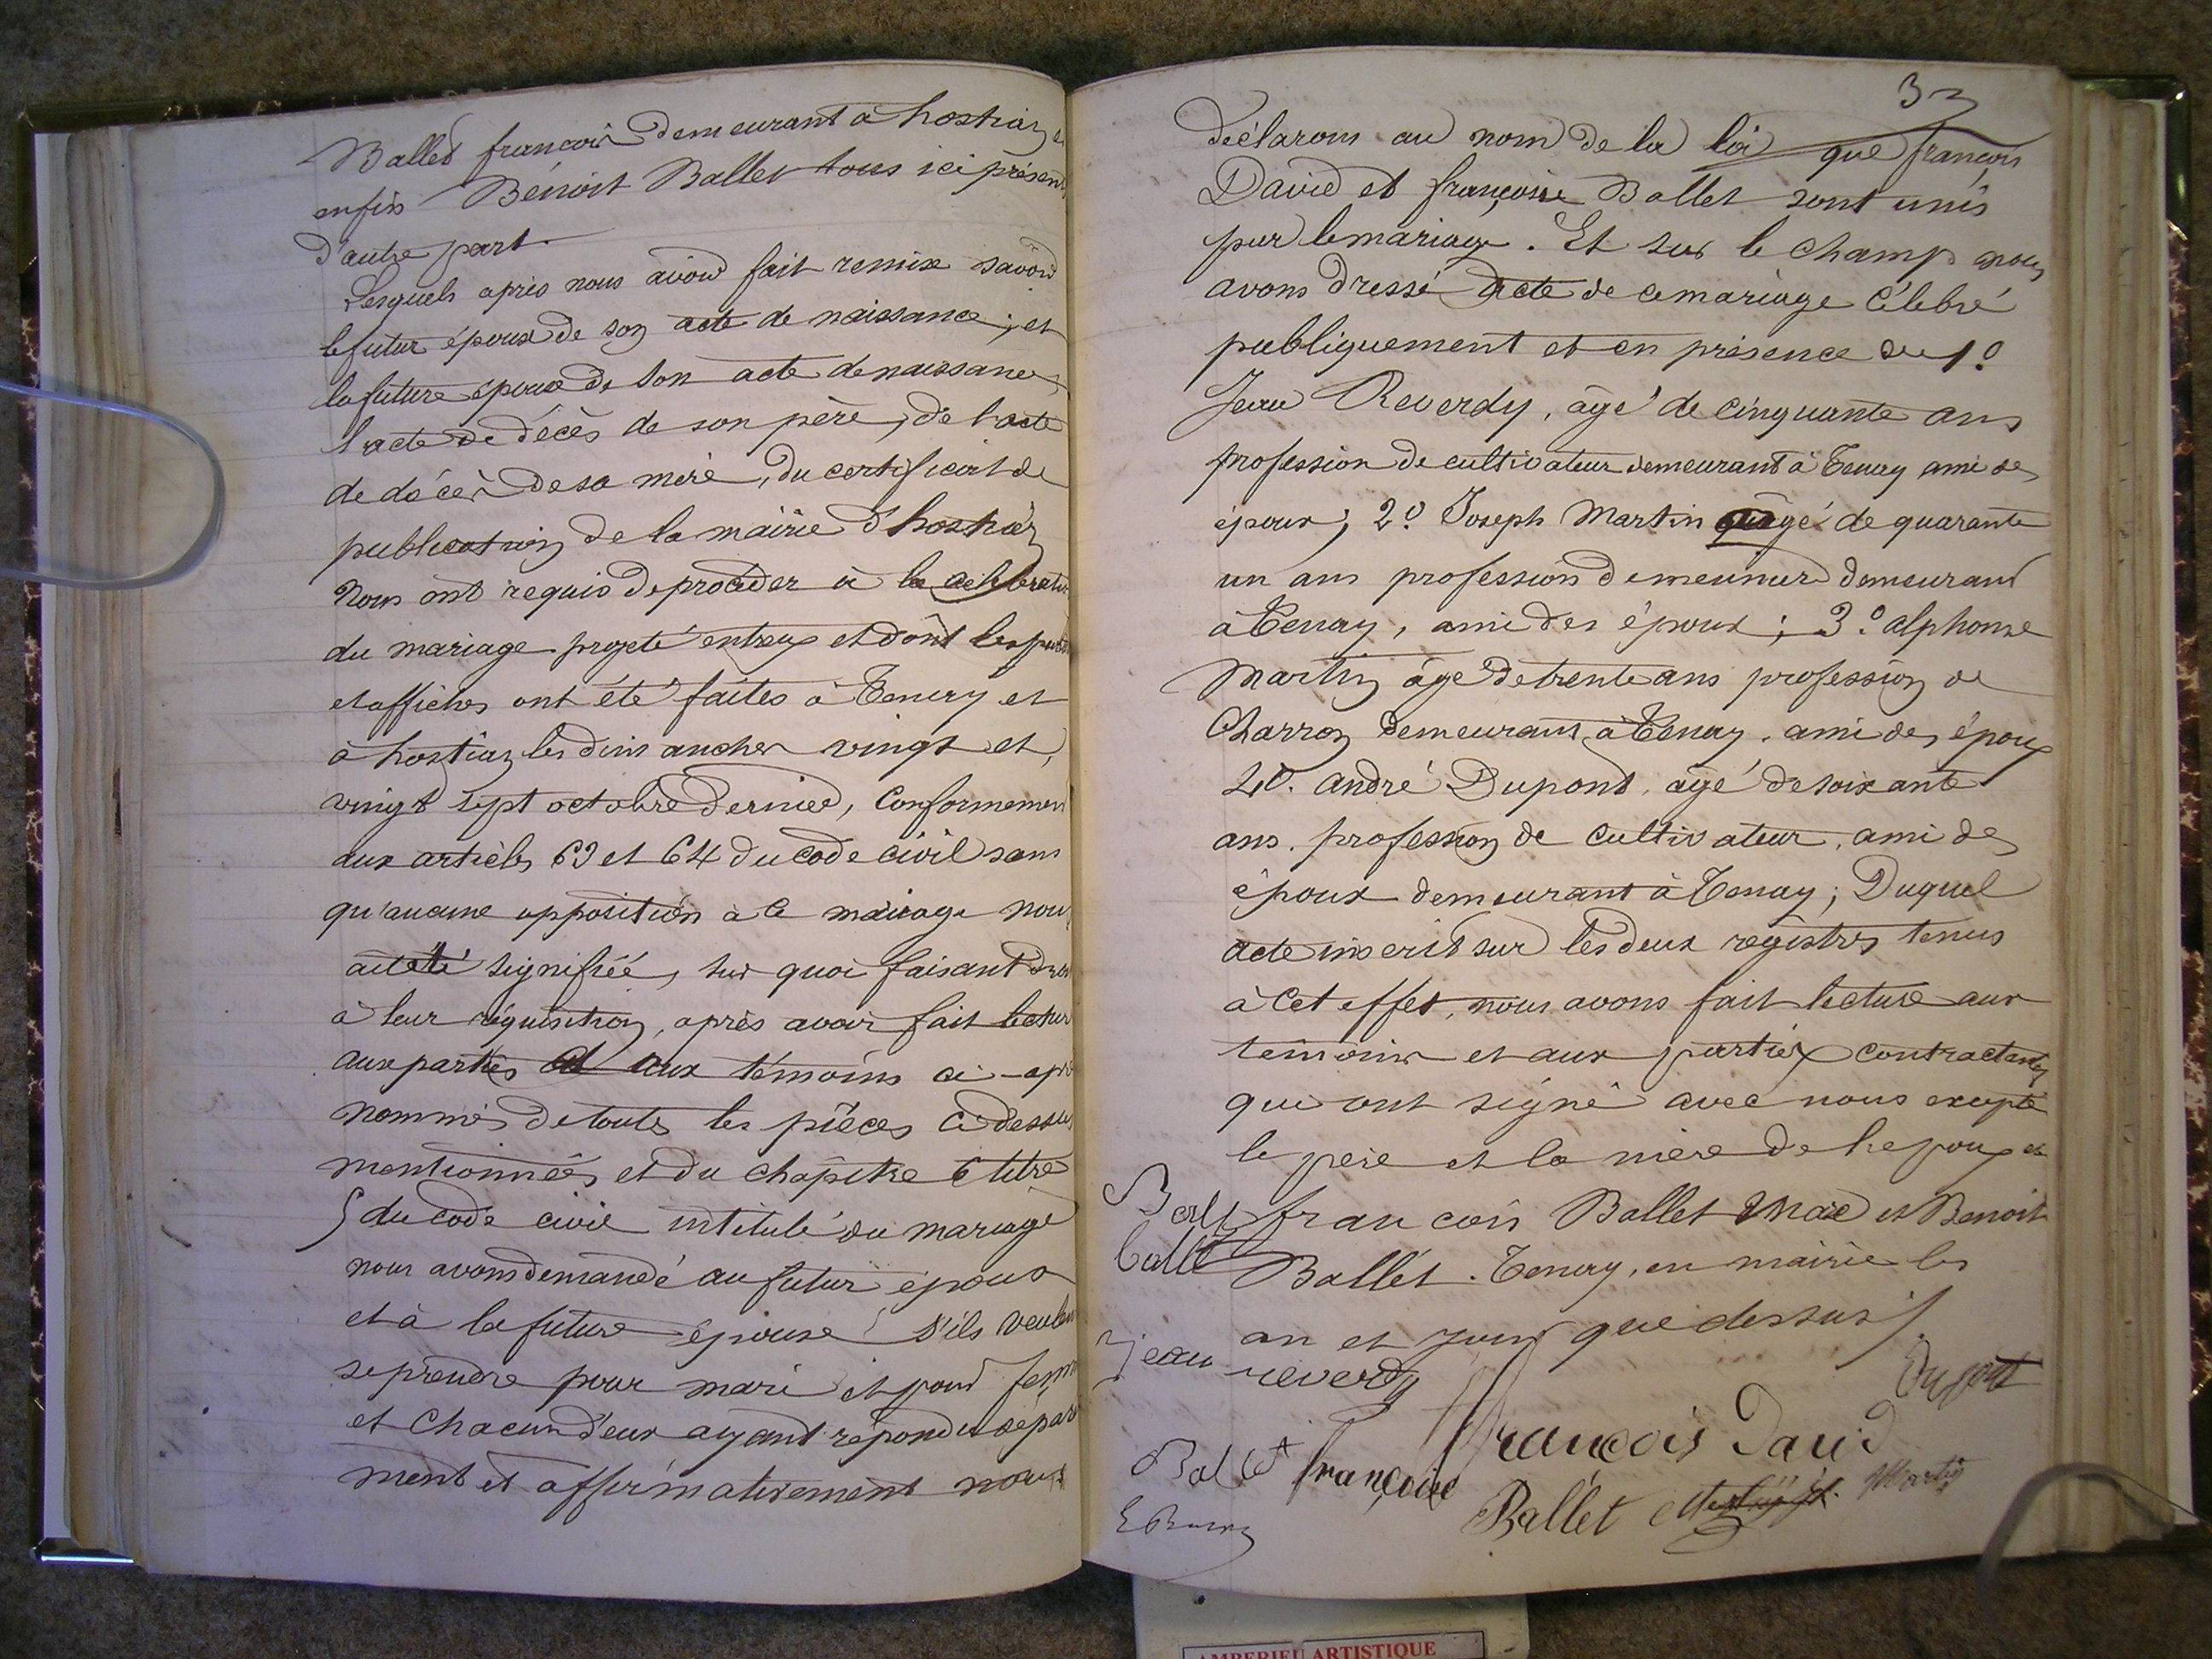 Ballet francois demeurant à hostiaz et
enfin Bénoit Ballet tous ici présents
d'autre part.
Lesquels après nous avoir fait remise savoir
le futur époux de son acte de naissance; et
la future épouse de son acte de naissance
l'acte de décès de son père, de l'acte
de décès de sa mère, du certificat de
publication de la mairie d'hostiaz
Nous ont requis de procéder à la célébration
du mariage projeté entreux et dont les
et affiches ont été faites à Tenay et
à hostiaz les dimanches vingt et,
vingt sept octobre dernier, Conformement
aux articles 63 et 64 du code civil sans
qu'aucune opposition à ce mariage nous
ait été signifiée, sur quoi faisant droit
à leur réquisition, après avoir fait lecture
aux parties et aux témoins ci-après
nommés de toutes les pièces ci dessus
mentionnées et du chapitre 6 titre
5 du code civil intitulé du mariage
nous avons demandé au futur époux
et à la future épouse s'ils veulent
se prendre pour mari et pour femme
et chacun d'eux ayant répondu sépare
ment et affirmativement nous
33
déclarons au nom de la loi que françois
David et françoise Ballet sont unis
par le mariage. Et sur le champ nous
avons dressé acte de ce mariage célebré
publiquement et en présence de 1º
Jean Reverdy, âgé de cinquante ans
profession de cultivateur demeurant à Tenay ami des
époux; 2º Joseph Martin âgé de quarante
un ans profession de meunier demeurant
à Tenay, ami des époux; 3º alphonse
Martin âgé de trente ans profession de
Charron demeurant à Tenay. ami des époux
4º. André Dupont, âgé de soixante
ans. profession de cultivateur, ami des
époux demeurant à Tenay; Duquel
acte inscrit sur les deux registres tenus
à cet effet, nous avons fait lecture aux
témoins et aux parties contractantes
qui ont signé avec nous excepté
le père et la mère de l'epoux et
francois Ballet et Benoit
Ballet. Tenay, en mairie les
an et jour que dessus
jean reverdy
Dupont
François David
Ballet françoise
Ballet
Martin
AMBERIEU ARTISTIQUE